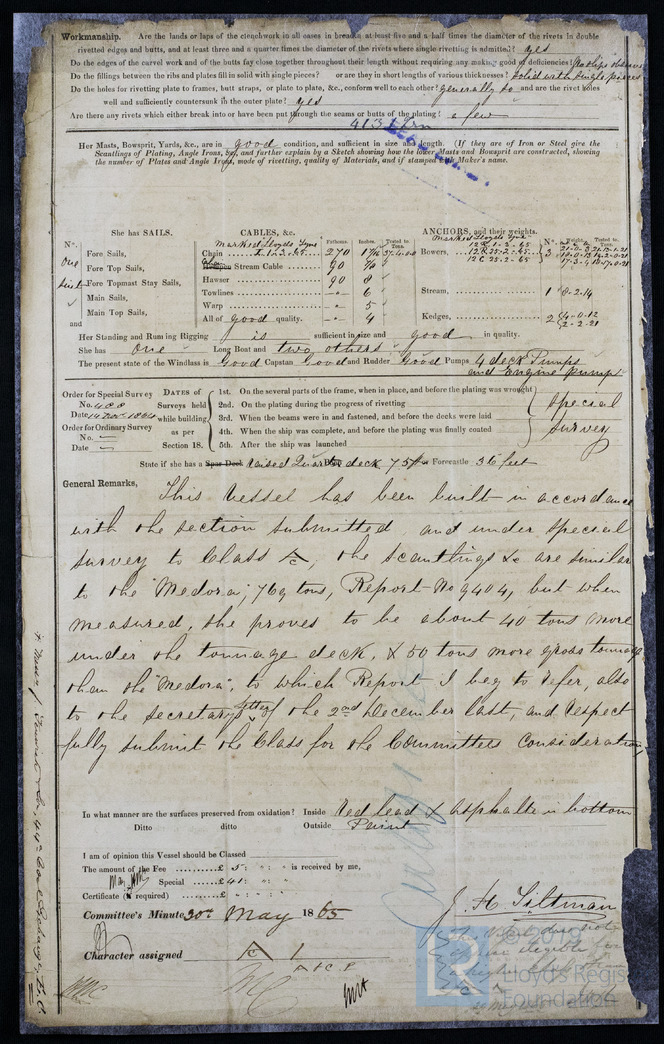 Workmanship. Are the lands or laps of the clenchwork in all cases in breadth at least five and a half times the diameter of the rivets in double
rivetted edges and butts, and at least three and a quarter times the diameter of the rivets where single rivetting is admitted? yes
Do the edges of the carvel work and of the butts fay close together throughout their length without requiring any making good of deficiencies?
Do the fillings between the ribs and plates fill in solid with single pieces? or are they in short lengths of various thicknesses? Solid with single pieces
Do the holes for rivetting plate to frames, butt straps, or plate to plate, &c., conform well to each other? generally so and are the rivet holes
well and sufficiently countersunk in the outer plate? yes
Are there any rivets which either break into or have been put through the seams or butts of the plating? a few
413
Her Masts, Bowsprit, Yards, &c., are in good condition, and sufficient in size and length. (If they are of Iron or Steel give the
Scantlings of Plating, Angle Irons, &c., and further explain by a Sketch showing how the lower Masts and Bowsprit are constructed, showing
the number of Plates and Angle Irons, mode of rivetting, quality of Materials, and if stamped with Maker's name.
She has SAILS. CABLES, &c. Fathoms. Inches. Tested to Tons. ANCHORS, and their weights. Nº. Weight. Tested to Tons.
Nº. Marked Lloyds Tyne Marked Lloyds Tyne
one Fore Sails, Chain 270 1 7/16 Bowers, 3
Fore Top Sails, Chain Stream Cable 90 7/8
suit Fore Topmast Stay Sails, Hawser 90 8
Main Sails, Towlines 6 Stream, 1 8-2-14
Main Top Sails, Warp 5
and All of good quality. 4 Kedges, 2 4-0-12
2-2-21
Her Standing and Running Rigging is sufficient in size and good in quality.
She has one Long Boat and two others
The present state of the Windlass is Good Capstan Good and Rudder Good Pumps 4 deck Pumps
and Engine pumps
Order for Special Survey No. 488 Date 14 Nov. 1864
Order for Ordinary Survey No. Date
DATES of Surveys held while building as per Section 18.
1st. On the several parts of the frame, when in place, and before the plating was wrought
2nd. On the plating during the progress of rivetting
3rd. When the beams were in and fastened, and before the decks were laid
4th. When the ship was complete, and before the plating was finally coated
5th. After the ship was launched
Special
Survey
State if she has a Spar Deck Raised Quarter deck 75 ft or Forecastle 36 feet
General Remarks, This Vessel has been built in accordance
with the section submitted, and under special
survey to Class A; the scantlings &c are similar
to the "Medora", 769 tons, Report No 9404, but when
measured, she proves to be about 40 tons more
under the tonnage deck, & 50 tons more gross tonnage
than the "Medora", to which Report I beg to refer, also
to the secretary's letter of the 2nd December last, and respect
fully submit the Class for the Committees consideration
In what manner are the surfaces preserved from oxidation? Inside Red lead & Asphalte in bottom
Ditto ditto Outside Paint
I am of opinion this Vessel should be Classed
The amount of the Fee £ 5 : " : " is received by me,
Special £ 41 : " : "
Certificate (if required) £ " : " : "
J. H. Tiltman
Committee's Minute 30th May 1865
Character assigned A 1
A & C P
© 2019
Lloyd's Register
Foundation